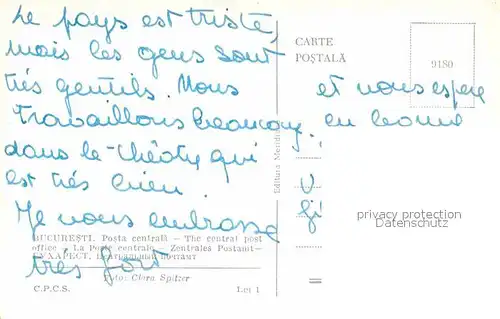 Le pays est triste,
mais les gens sont
très gentils. Nous
travaillons beaucoup
dans le théâtre qui
est très bien.
Je vous embrasse
très fort
et vous espère
en bonne
CARTE
POȘTALĂ
9180
Editura Meridiane
privacy protection
Datenschutz
BUCUREȘTI. Poșta centrală — The central post
office — La Poste centrale — Zentrales Postamt—
Foto: Clara Spitzer
C.P.C.S.
Lei 1